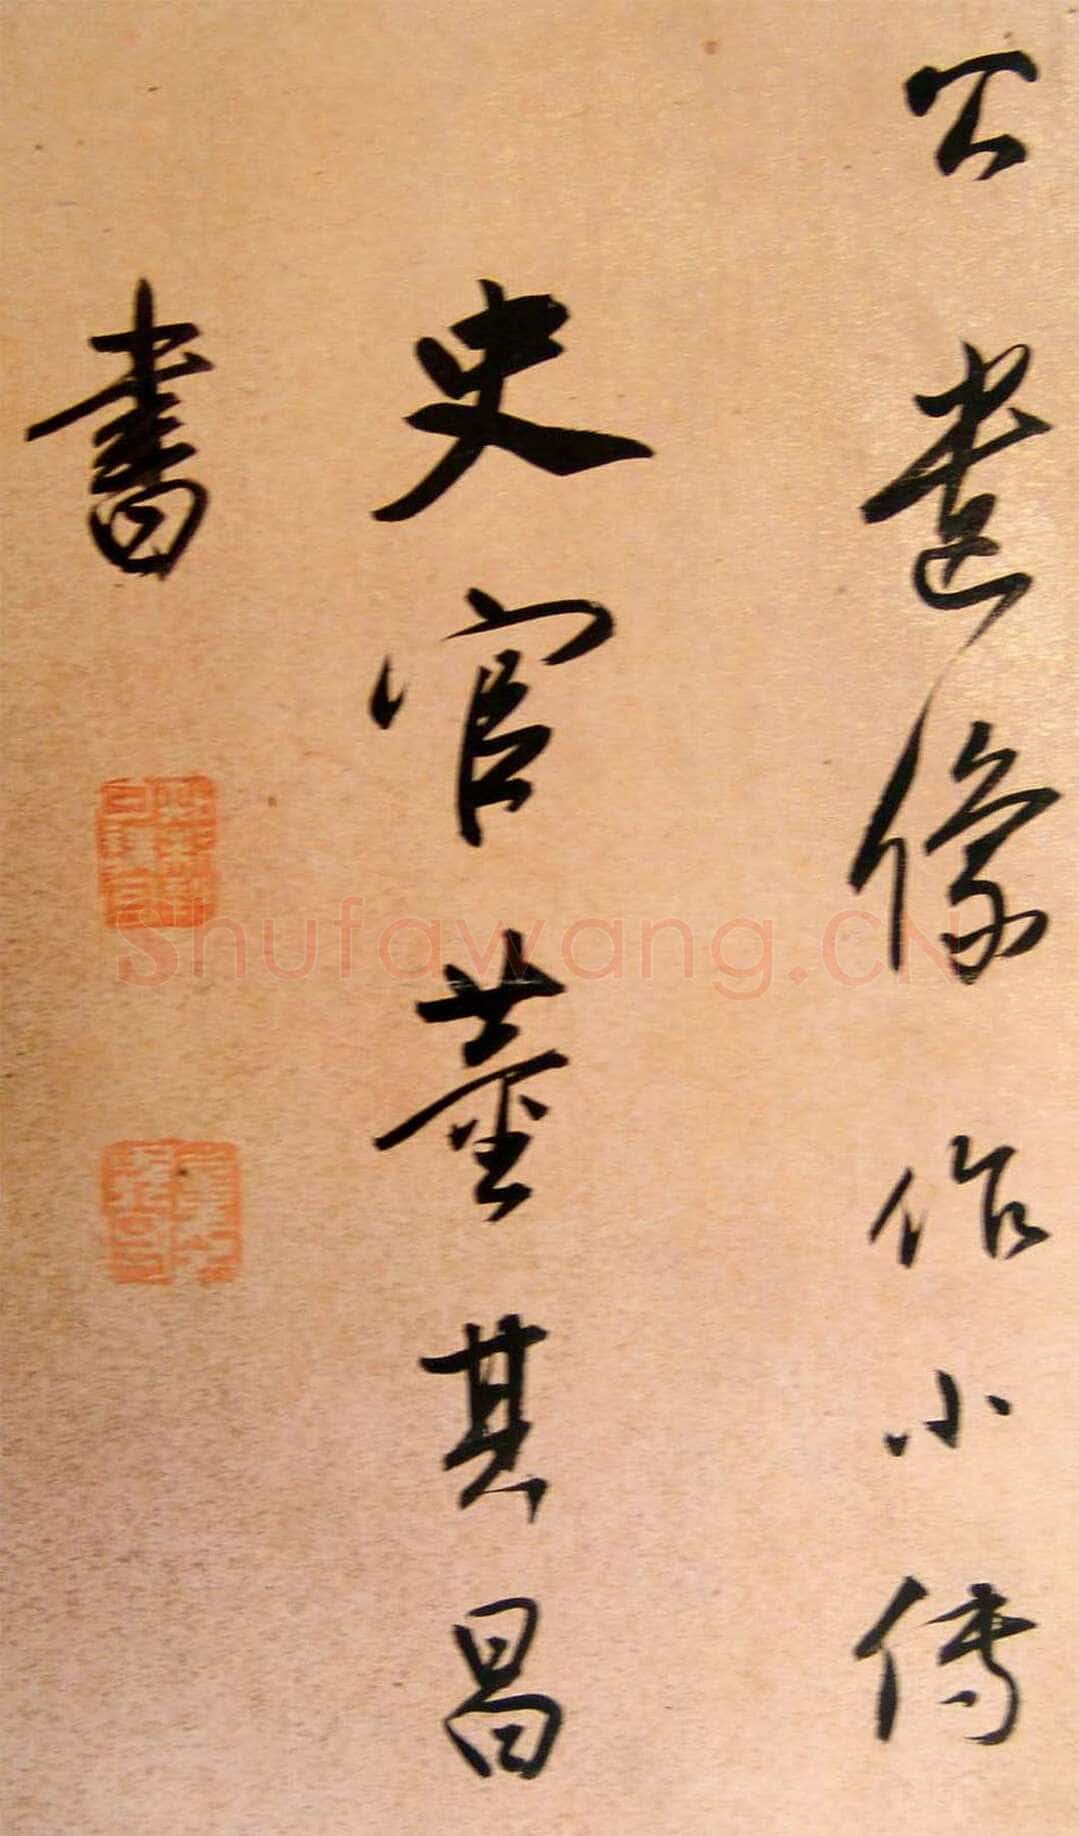 公遺像作小傳
史官董其昌
書
Shufawang.CN